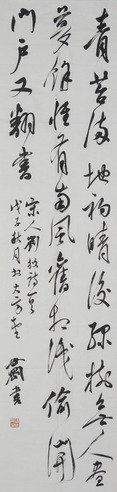 青苔滿地初晴後綠樹無人晝
夢餘惟有南風舊相識偷開
門戶又翻書
宋人劉攽詩一首
戊子秋月於大方
書